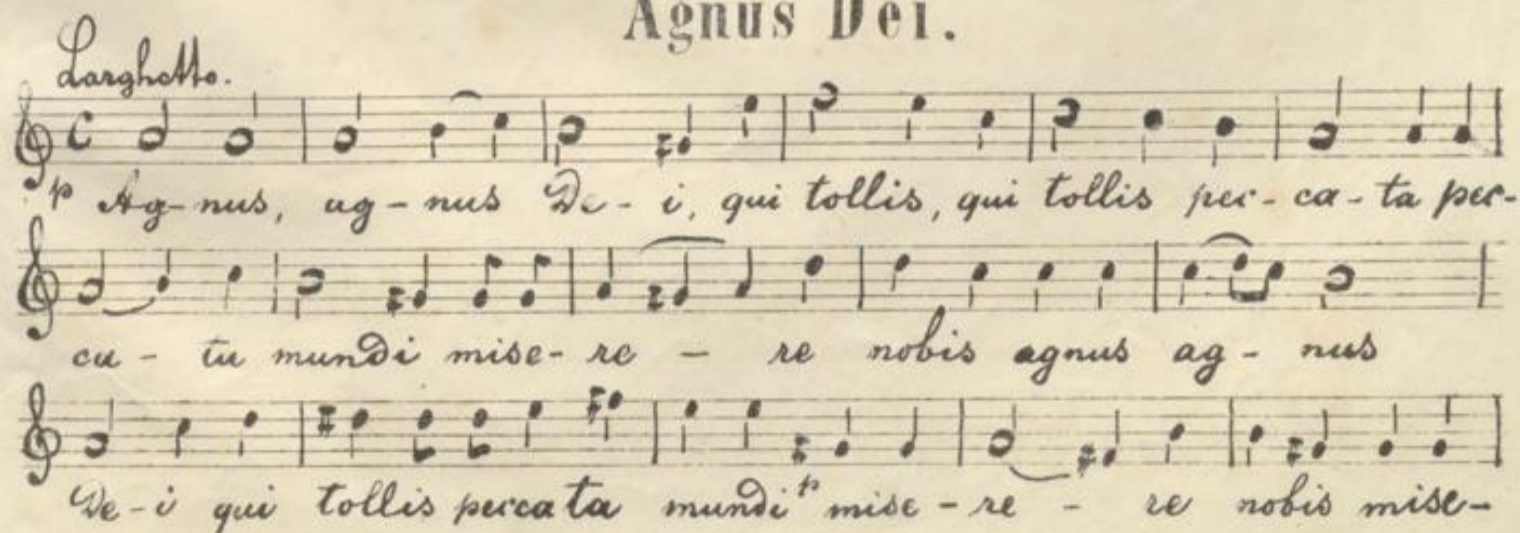 Agnus Dei.
Larghetto.
p Ag-nus, ag-nus De-i, qui tollis, qui tollis pec-ca-ta pec-
ca-ta mundi mise-re - re nobis agnus ag-nus
De-i qui tollis peccata mundi p mise-re - re nobis mise-